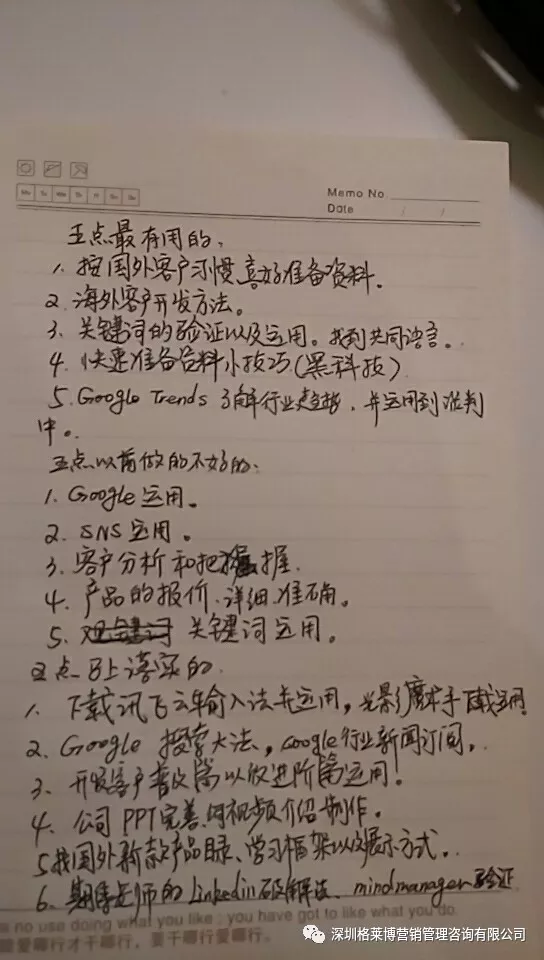 Memo No.
Date / /
五点最有用的，
1. 按国外客户习惯喜好准备资料。
2. 海外客户开发方法。
3. 关键词的验证以及运用。找到共同语言。
4. 快速准备资料小技巧(黑科技)
5. Google Trends 了解行业趋势，并运用到谈判
中。
五点以前做的不好的:
1. Google 运用。
2. SNS 运用。
3. 客户分析和把握.
4. 产品的报价.详细.准确。
5. 关键词运用。
五点马上落实的.
1. 下载讯飞云输入法并运用，光影魔术手下载运用
2. Google 搜索大法，Google行业新闻订阅。
3. 开发客户普及篇以及进阶篇运用！
4. 公司PPT完善.视频介绍制作。
5 找国外新款产品目录、学习框架以及展示方式。
6. 期待老师的Linkedin破解法、mindmanager验证
is no use doing what you like ; you have got to like what you do.
爱哪行才干哪行，要干哪行爱哪行。
深圳格莱博营销管理咨询有限公司